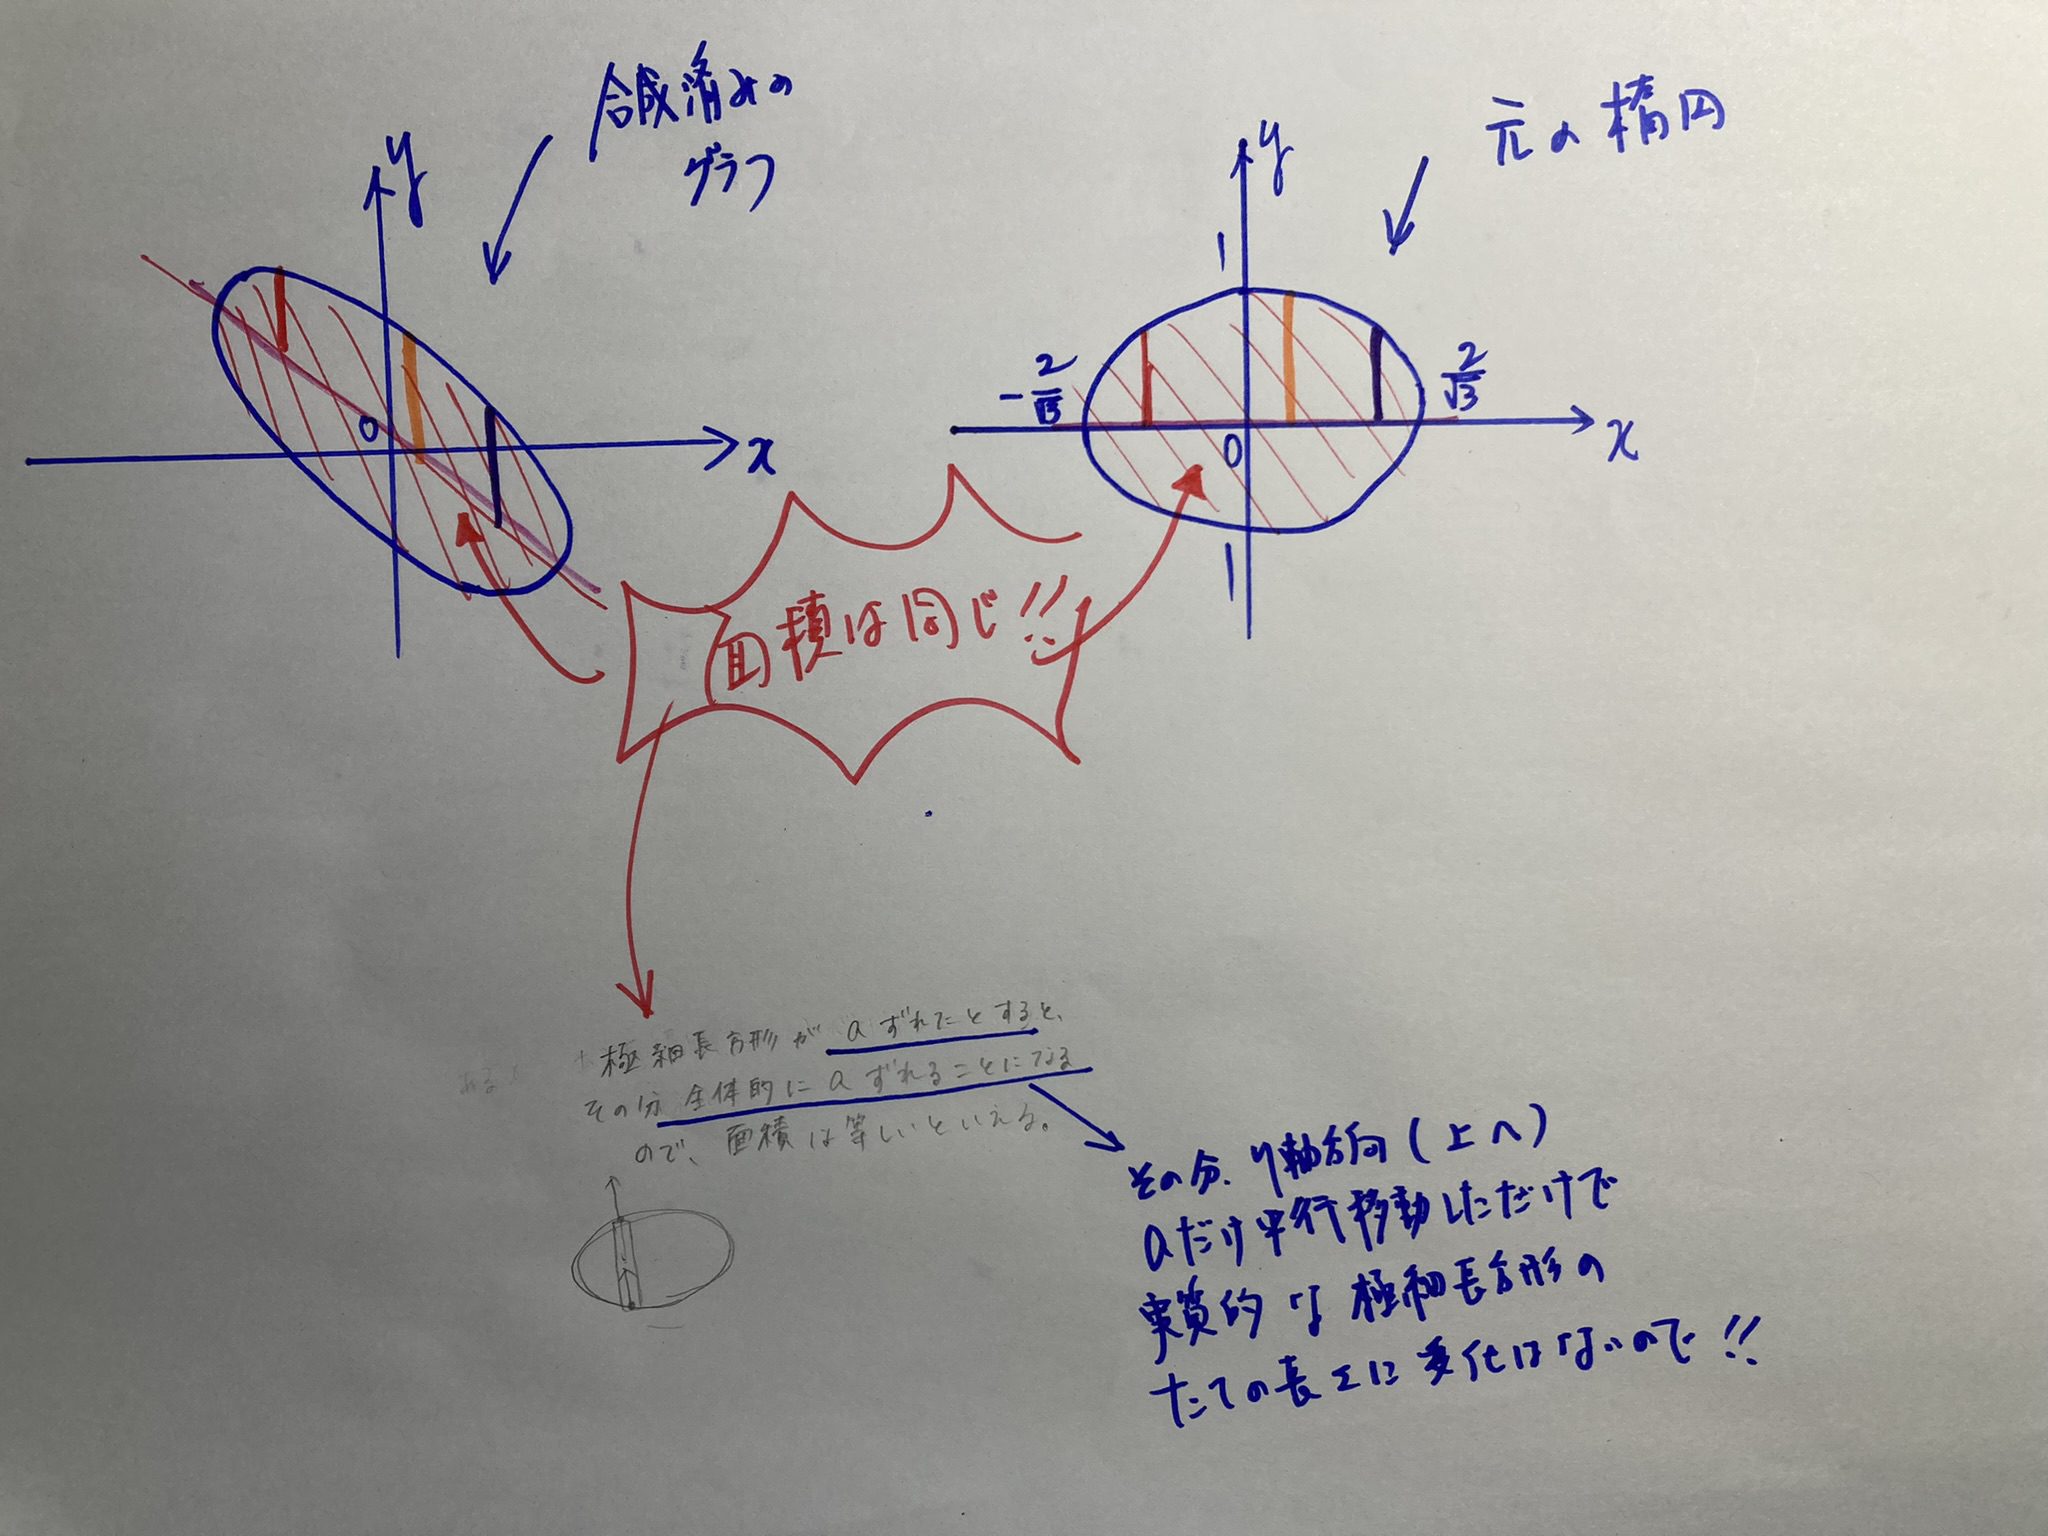 合成済みの
グラフ
y
0
x
元の楕円
y
1
-2/√3
2/√3
0
x
1
面積は同じ!!
極細長方形が aずれたとすると、
その分 全体的に aずれることになる
ので、面積は等しいといえる。
その分、y軸方向(上へ)
aだけ平行移動しただけで
実質的な極細長方形の
たての長さに変化はないので!!